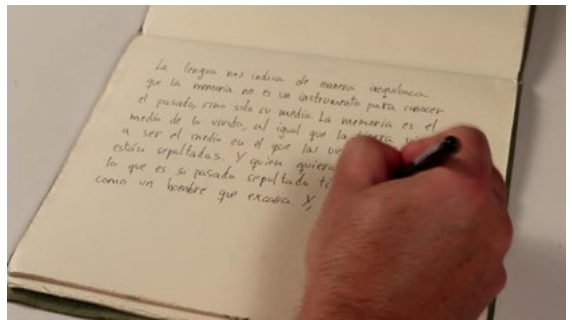 La lengua nos indica de manera inequívoca
que la memoria no es un instrumento para conocer
el pasado, sino solo su medio. La memoria es el
medio de lo vivido, al igual que la tierra
a ser el medio en el que las
están sepultadas. Y quien quiera
lo que es su pasado sepultado
como un hombre que excava. Y,